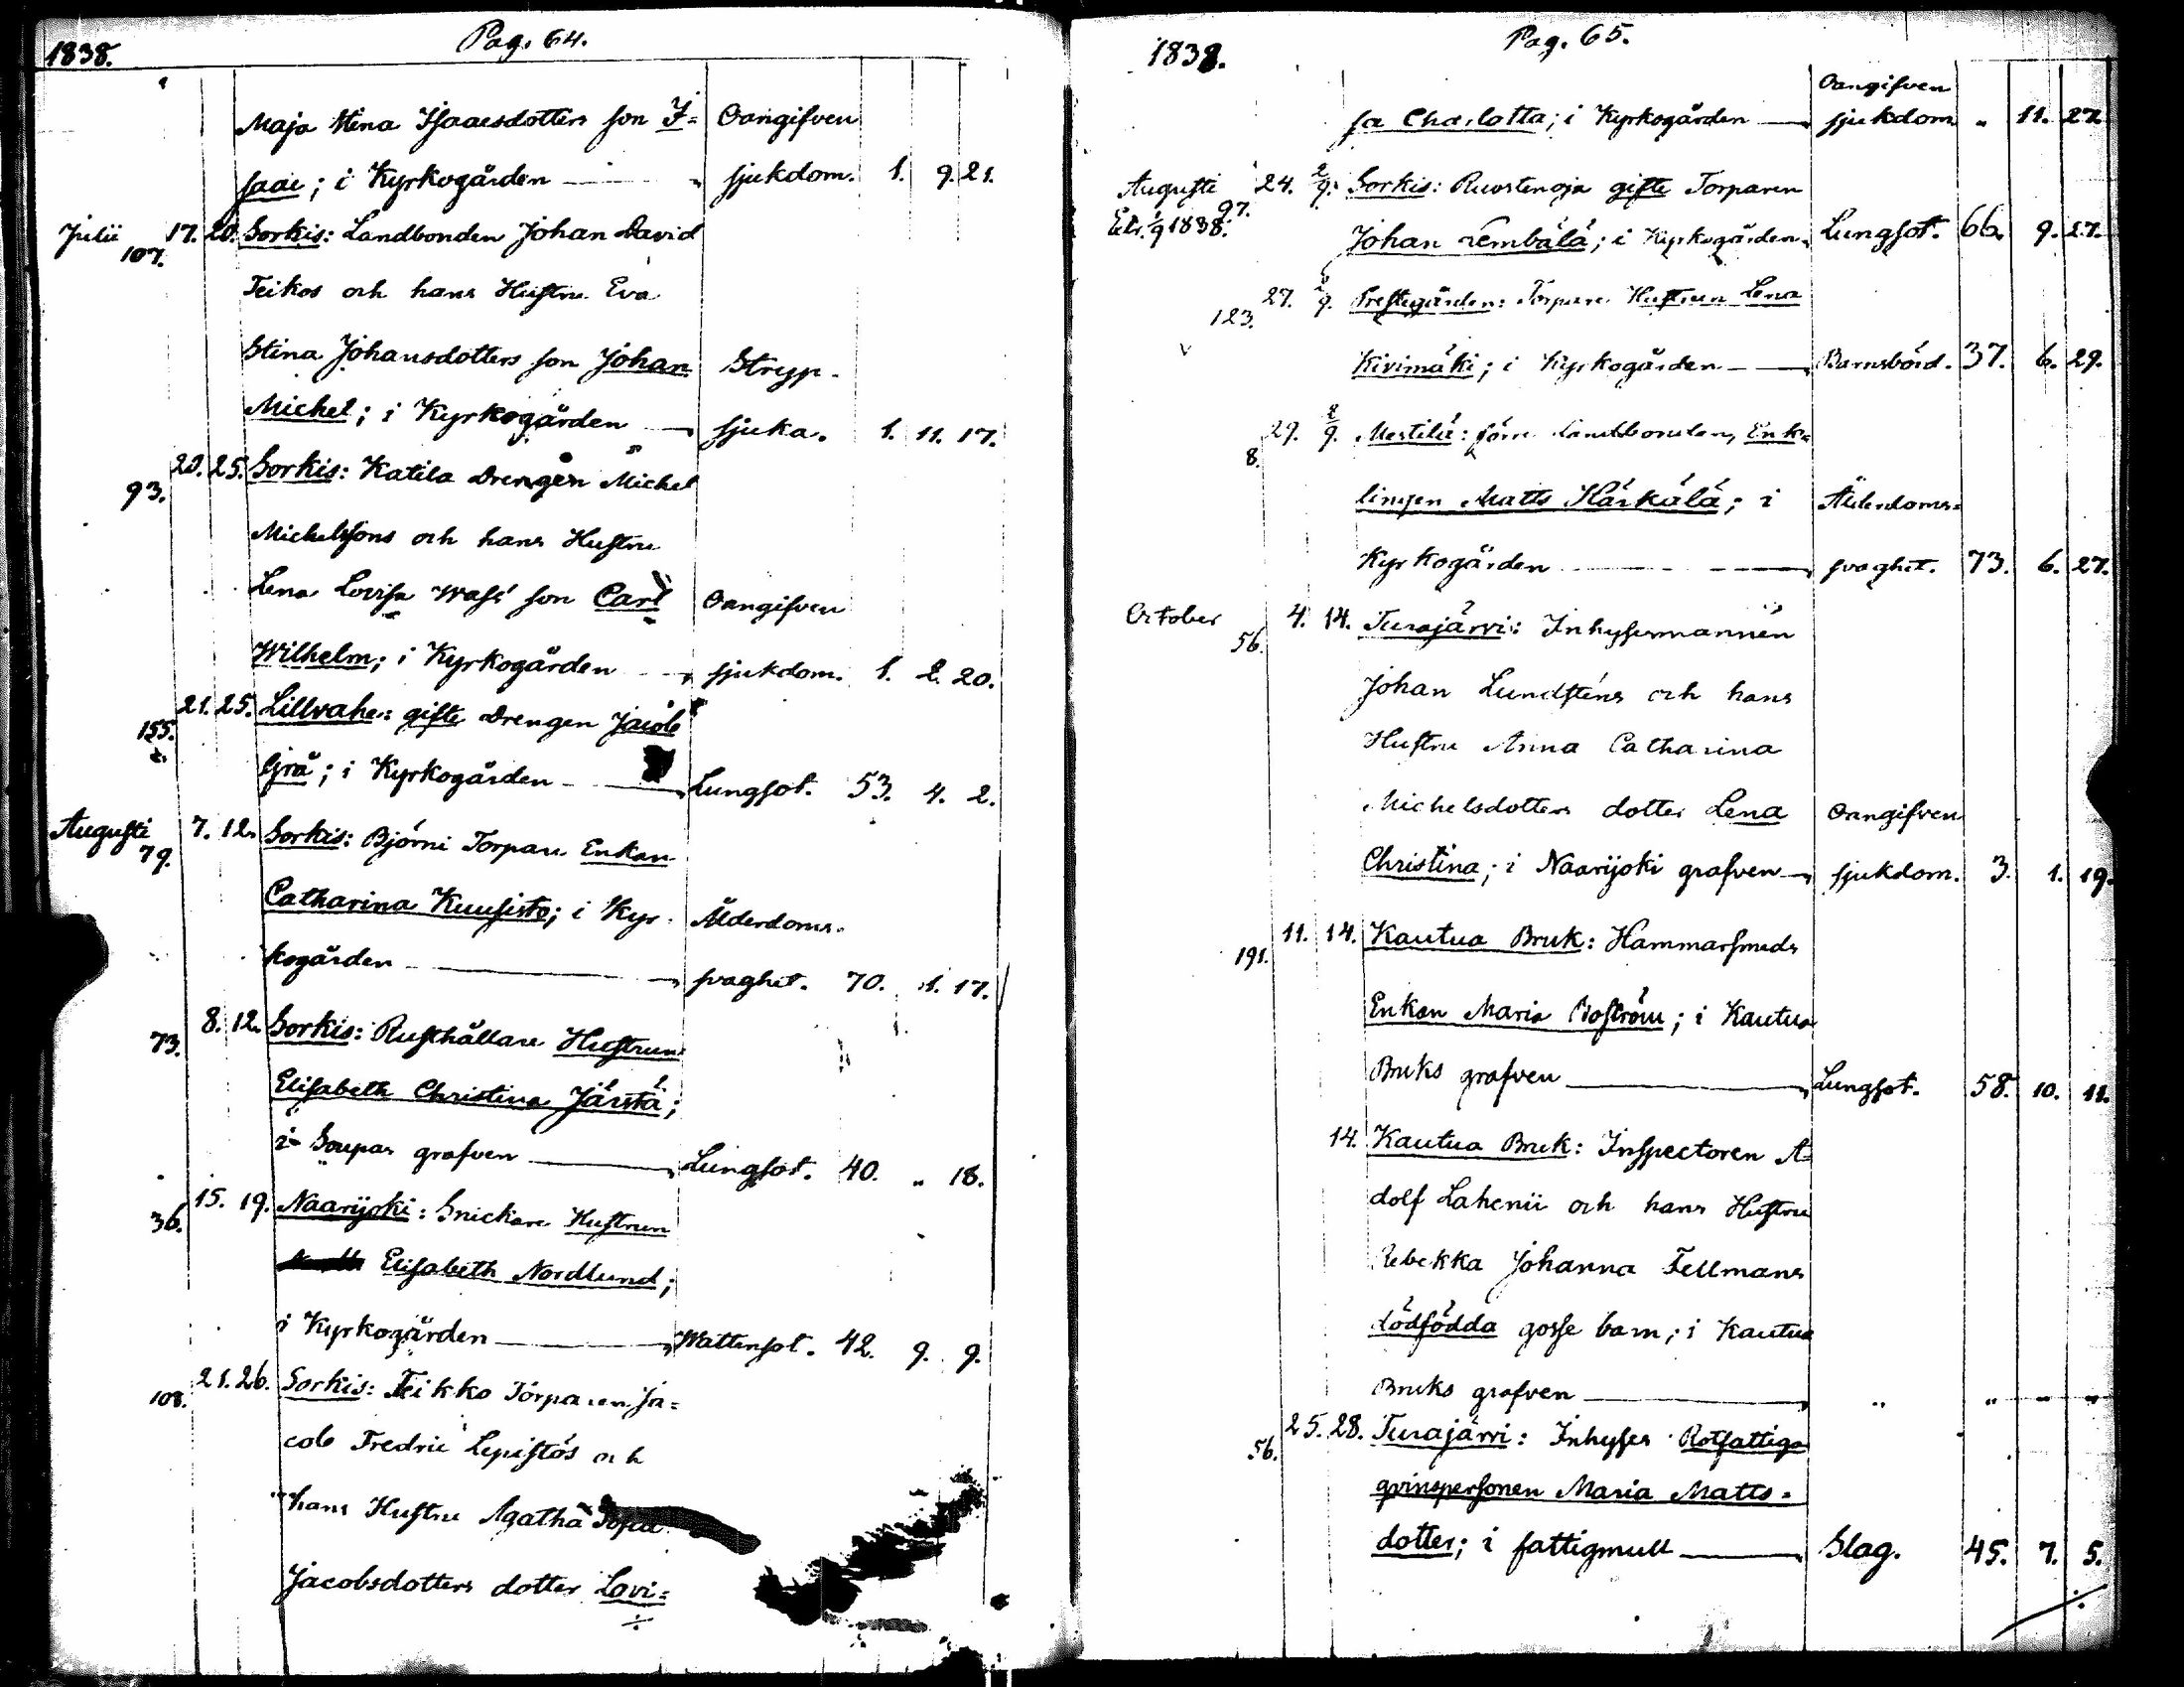 1838. Pag. 64.
Maja Stina Isaacsdotters son I= Oangifven
saac; i Kyrkogården sjukdom. 1. 9. 21.
Julii 17. 20. Sorkis: Landbonden Johan David
107.
Teikos och hans Hustru Eva
Stina Johansdotters son Johan Stryp-
Michel; i Kyrkogården sjuka. 1. 11. 17.
20. 25. Sorkis: Katila Drengen Michel
93.
Michelssons och hans Hustru
Lena Lovisa Wass' son Carl Oangifven
Wilhelm; i Kyrkogården sjukdom. 1. 2. 20.
21. 25. Lillvahe: gifte Drengen Jacob
155.
Grå; i Kyrkogården Lungsot. 53. 4. 2.
Augusti 7. 12. Sorkis: Björni Torpare Enkan
79.
Catharina Kuusisto; i Kyr- Ålderdoms-
kogården svaghet. 70. 1. 17.
8. 12. Sorkis: Rusthållare Hustrun
73.
Elisabeth Christina Järstä;
i Soupas grafven Lungsot. 40. " 18.
15. 19. Naarijoki: Snickare Hustrun
36.
Elisabeth Nordlund;
i Kyrkogården Wattensot. 42. 9. 9.
21. 26. Sorkis: Teikko Torparen Ja=
108.
cob Fredric Lepistös och
hans Hustru Agatha Sofia
Jacobsdotters dotter Lovi=
1838. Pag. 65.
Oangifven
sa Charlotta; i Kyrkogården sjukdom " 11. 27.
Augusti 24. 2/9. Sorkis: Ruostenoja gifte Torparen
97.
1838. Johan Lembälä; i Kyrkogården Lungsot. 66. 9. 27.
27. 2/9. Prestegården: Torpare Hustrun Lena
123.
Kivimäki; i Kyrkogården Barnsbörd. 37. 6. 29.
29. 2/9. Mestilä: förre Landtbonden, Enk=
8.
lingen Matts Härkälä; i Ålderdoms=
Kyrkogården svaghet. 73. 6. 27.
October 4. 14. Turajärvi: Inhysesmannen
56.
Johan Lundsténs och hans
Hustru Anna Catharina
Michelsdotters dotter Lena Oangifven
Christina; i Naarijoki grafven sjukdom. 3. 1. 19.
11. 14. Kautua Bruk: Hammarsmeds
191.
Enkan Maria Boström; i Kautua
Bruks grafven Lungsot. 58. 10. 11.
14. Kautua Bruk: Inspectoren A=
dolf Lahenii och hans Hustru
Rebekka Johanna Fellmans
dödfödda gosse barn; i Kautua
Bruks grafven " " " "
25. 28. Turajärvi: Inhyses Rotfattiga
56.
qvinspersonen Maria Matts-
dotter; i fattigmull Slag. 45. 7. 5.